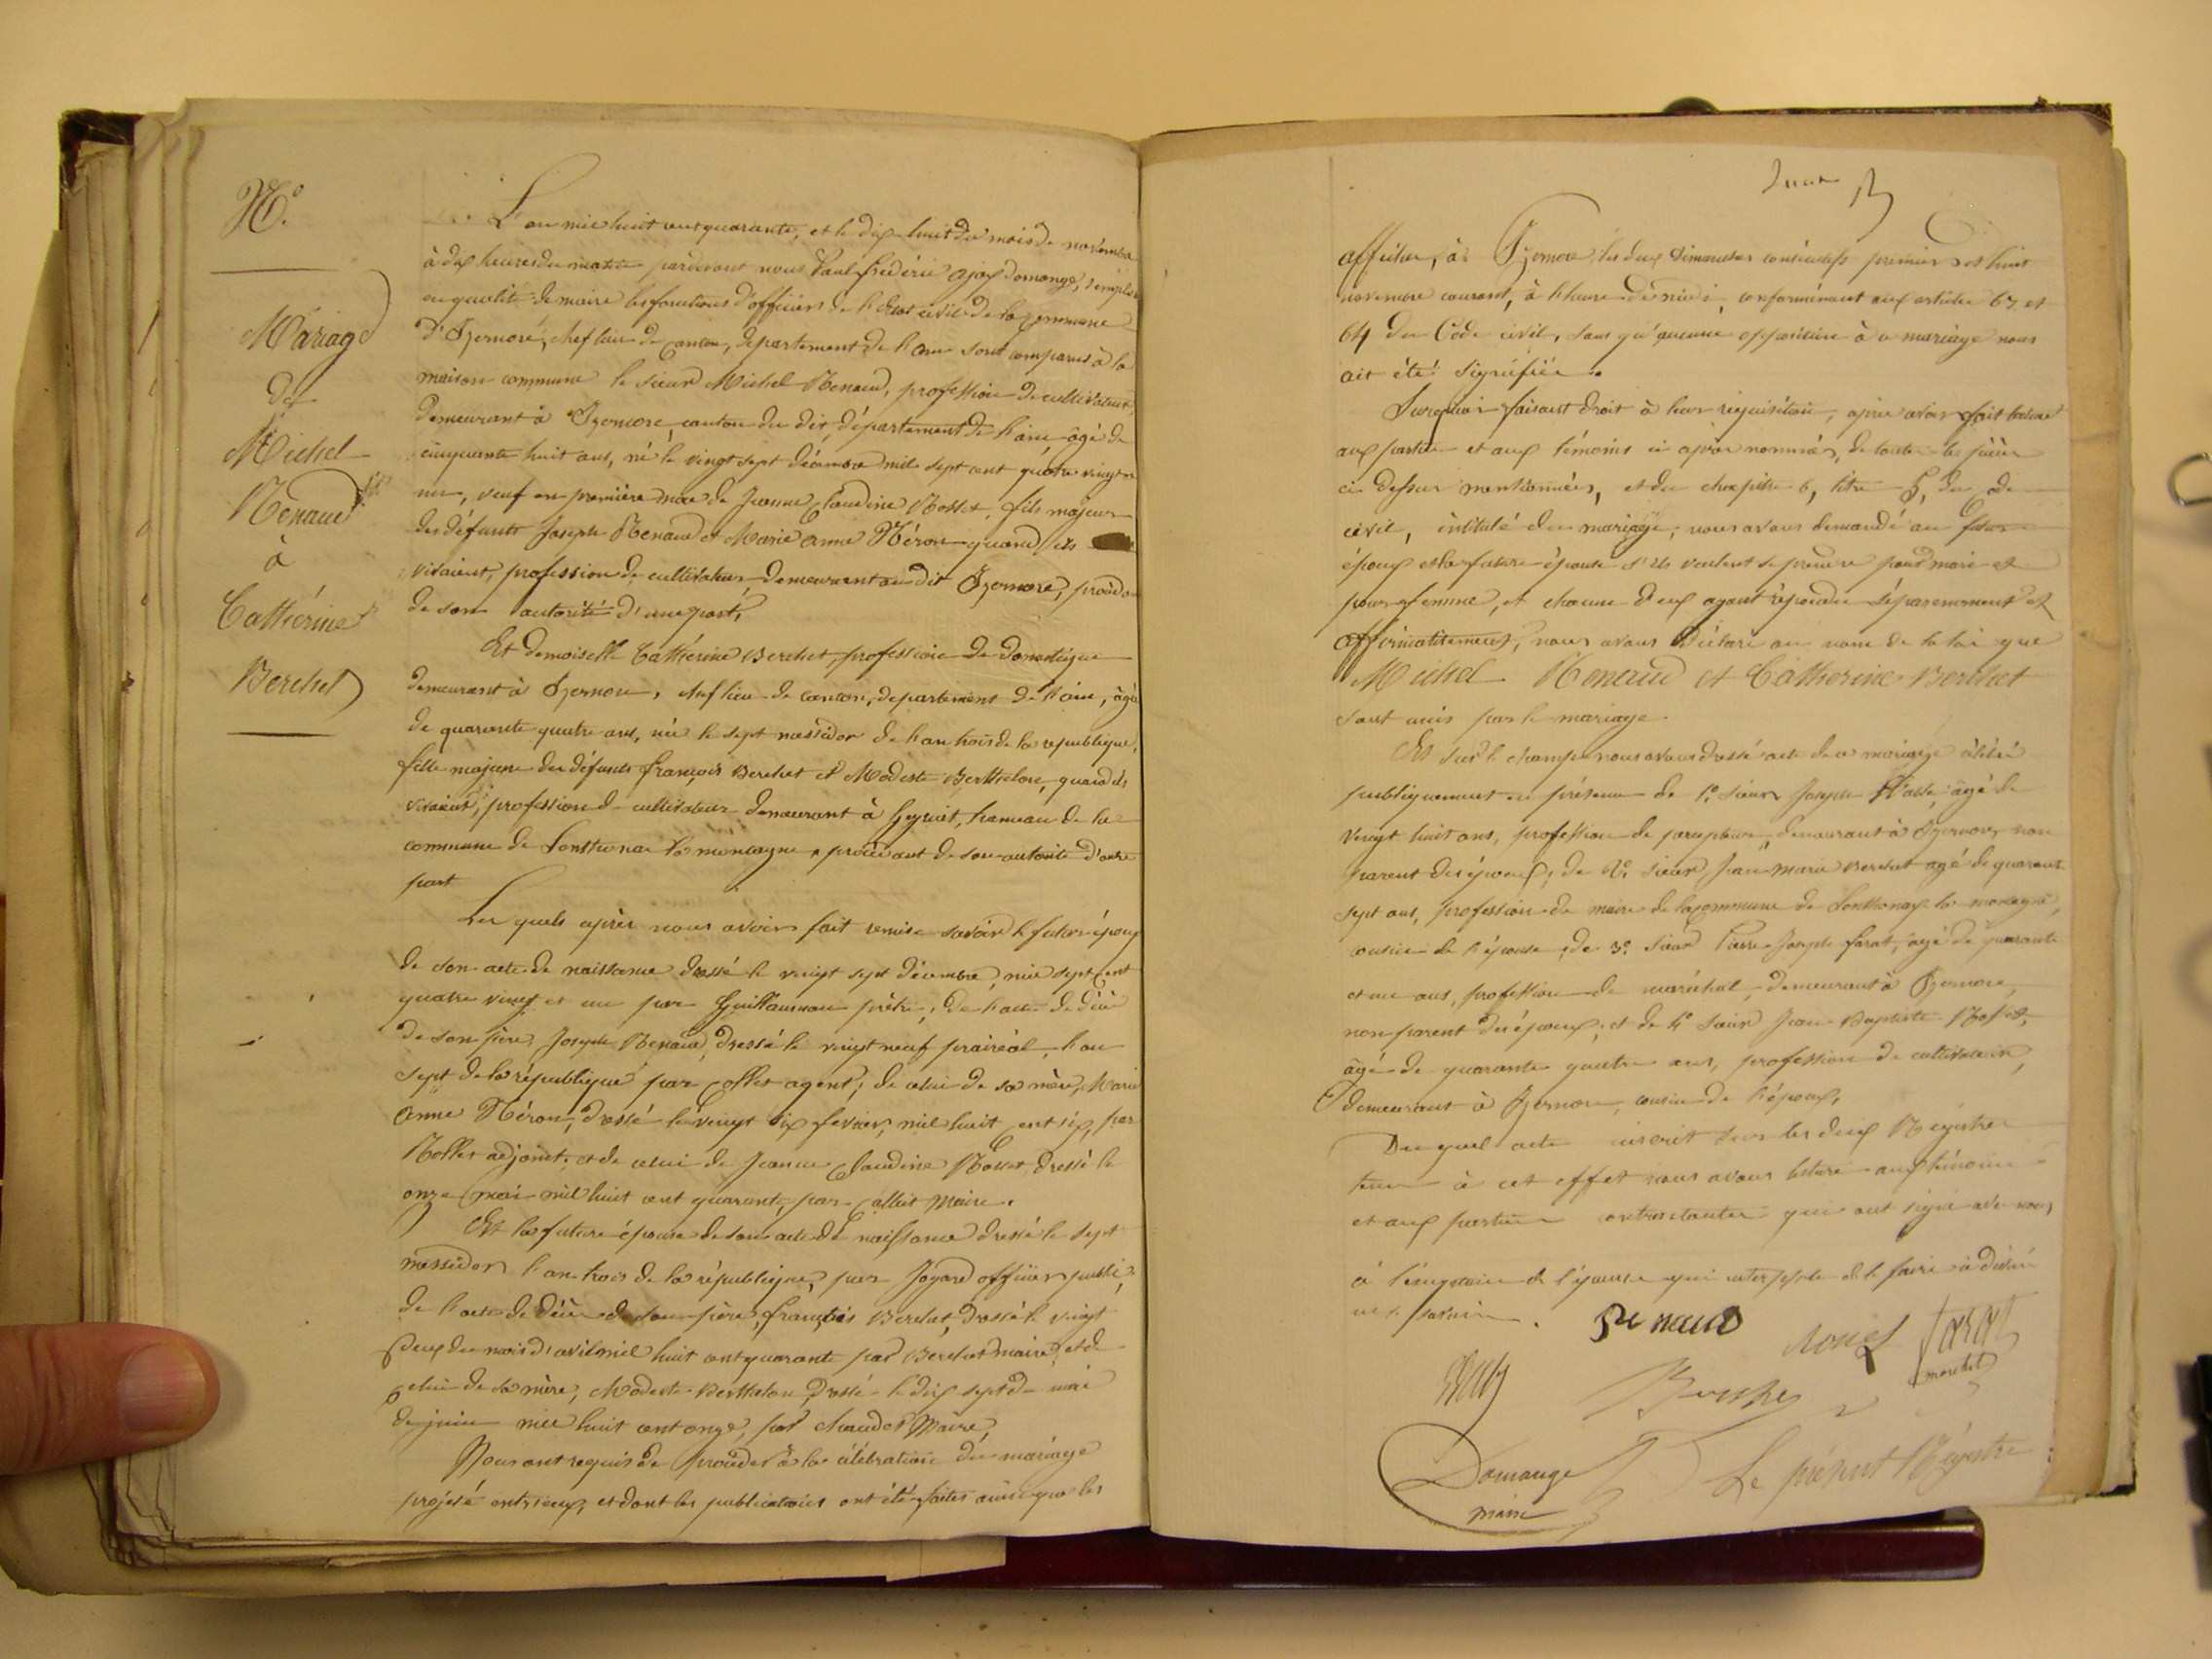 N.º
Mariage
de
Michel
Renaud
à
Cathérine
Berchet
L'an mil huit cent quarante, et le dix huit du mois de novembre
à dix heures du matin pardevant nous Paul Frédéric ajax domange,
en qualité de maire les fonctions d'officier de l'Etat civil de la commune
d'Izernore, chef lieu de canton, département de l'ain sont comparus à la
maison commune le sieur Michel Renaud, profession de cultivateur,
demeurant à Izernore, canton du dit, département de l'ain, âgé de
cinquante huit ans, né le vingt sept décembre mil sept cent quatre vingt
un, veuf en première noce de Jeanne Claudine Rosset, fils majeur
des défunts Joseph Renaud et Marie Anne Néron quand ils
vivaient, profession de cultivateur, demeurant au dit Izernore, procédant
de son autorité d'une part,
Et demoiselle Cathérine Berchet, profession de domestique
demeurant à Izernore, chef lieu de canton, département de l'ain, âgée
de quarante quatre ans, née le sept messidor de l'an trois de la république,
fille majeure des défunts françois Berchet et Modeste Berthelon, quand ils
vivaient, profession de cultivateur demeurant à, hameau de la
commune de Lonthonax la montagne, procédant de son autorité d'autre
part
Les quels après nous avoir fait remise savoir le futur époux
de son acte de naissance dressé le vingt sept décembre, mil sept cent
quatre vingt et un par Guillaumau prêtre; de l'acte de décès
de son père Joseph Renaud, dressé le vingt neuf prairéal, l'an
sept de la république par Collet agent; de celui de sa mère, Marie
Anne Néron, dressé le vingt six fevrier, mil huit cent six, par
adjoint, et de celui de Jeanne Claudine Rosset dressé le
onze mai mil huit cent quarante, par Collet Maire.
Et la future épouse de son acte de naissance dressé le sept
messidor l'an trois de la république, par Joyard officier public,
de l'acte de décès de son père, françois Berchet, dressé le vingt
deux du mois d'avril mil huit cent quarante par Berchet maire, et de
celui de sa mère, Modeste Berthelon, dressé le dix sept de
de juin mil huit cent onze, par chaudet Maire,
Nous ont requis de procéder à la célébration du mariage
projeté entr'eux, et dont les publications ont été faites ainsi que les
affiches, à Izernore, les deux dimanches consécutifs premier et huit
novembre courant, à l'heure de midi, conformément aux articles 63 et
64 du Code civil, sans qu'aucune opposition à ce mariage nous
ait été signifiée.
Surquoi faisant droit à leur réquisition, après avoir fait lecture
aux parties et aux témoins ci après nommés, de toutes les pièces
ci dessus mentionnées, et du chapitre 6, titre 5, du
civil, intitulé du mariage; nous avons demandé au futur
époux et la future épouse s'ils veulent se prendre pour mari et
pour femme, et chacun d'eux ayant répondu séparemment et
affirmativement, nous avons déclaré au nom de la loi que
Michel Renaud et Cathérine Berchet
sont unis par le mariage.
Et sur le champ nous avons dressé acte de ce mariage célébré
publiquement en présence de 1º. sieur Joseph, âgé de
vingt huit ans, profession de percepteur, demeurant à Izernore, non
parent des époux; de 2º. sieur Jean Marie Berchet agé de quarante
sept ans, profession de maire de la commune de Lonthonax la montagne,
cousin de l'épouse; de 3º. sieur Pierre Joseph farat, âgé de quarante
et un ans, profession de maréchal, demeurant à Izernore,
non parent des époux; et de 4º sieur Jean Baptiste Rosset,
âgé de quarante quatre ans, profession de cultivateur,
demeurant à Izernore, cousin de l'époux,
Du quel acte inscrit sur les deux Régistres
tenu à cet effet nous avons lecturé aux témoins
et aux parties contractantes qui ont signé avec nous,
à l'exception de l'épouse qui interpellée de le faire a dit
ne savoir.
Renaud
Rosset
farat
marchal
Berchet
Domange
maire
Le présent Régistre